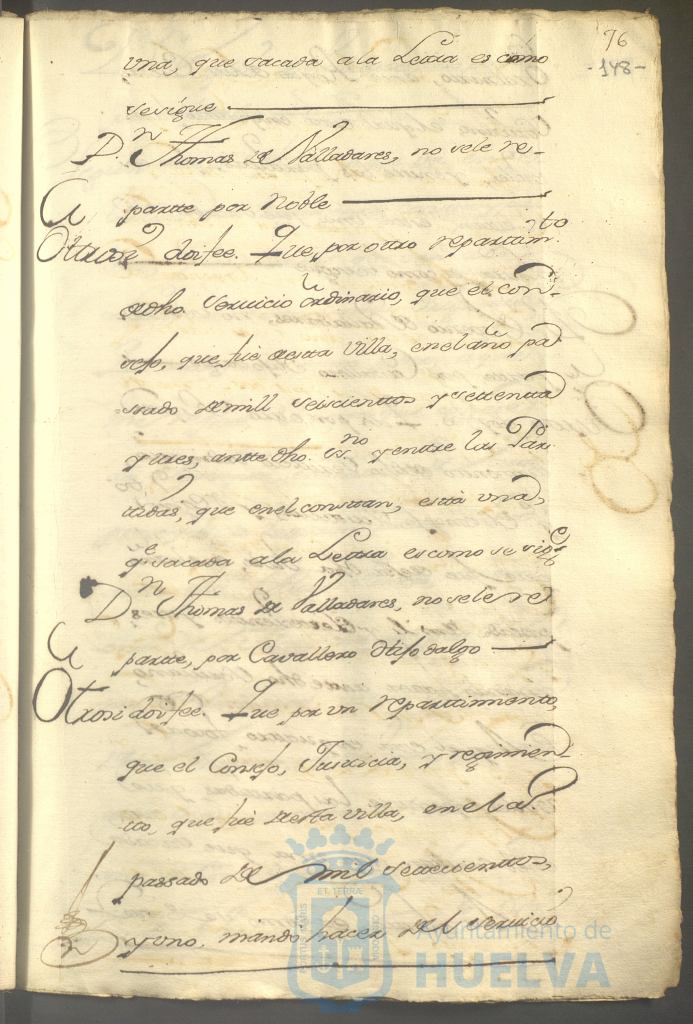 76
-148-
una, que sacada a la Letra es cómo
se sigue
D.n Thomas de Valladares, no se le re-
partte por noble
Ottrosi doi fee. Que, por otro repartim.to
de dho. servicio ordinario, que el con-
sejo, que fue de esta Villa, en el año pa
sado de mill seiscienttos y settenta
y tres, antte dho. es.no y entre las Par
tidas, que en el constan, esta una,
q.e sacada a la Letra es como se sigue
D.n Thomas de Valladares, no se le re
partte, por Cavallero Hijo dalgo
Otrosi doi fee. Que por un repartimiento,
que el Consejo, Justicia, y regimien-
to, que fue de esta villa, en el a.o
passado de mil settecienttos,
y uno. mando hacer del servicio
Ayuntamiento de
HUELVA